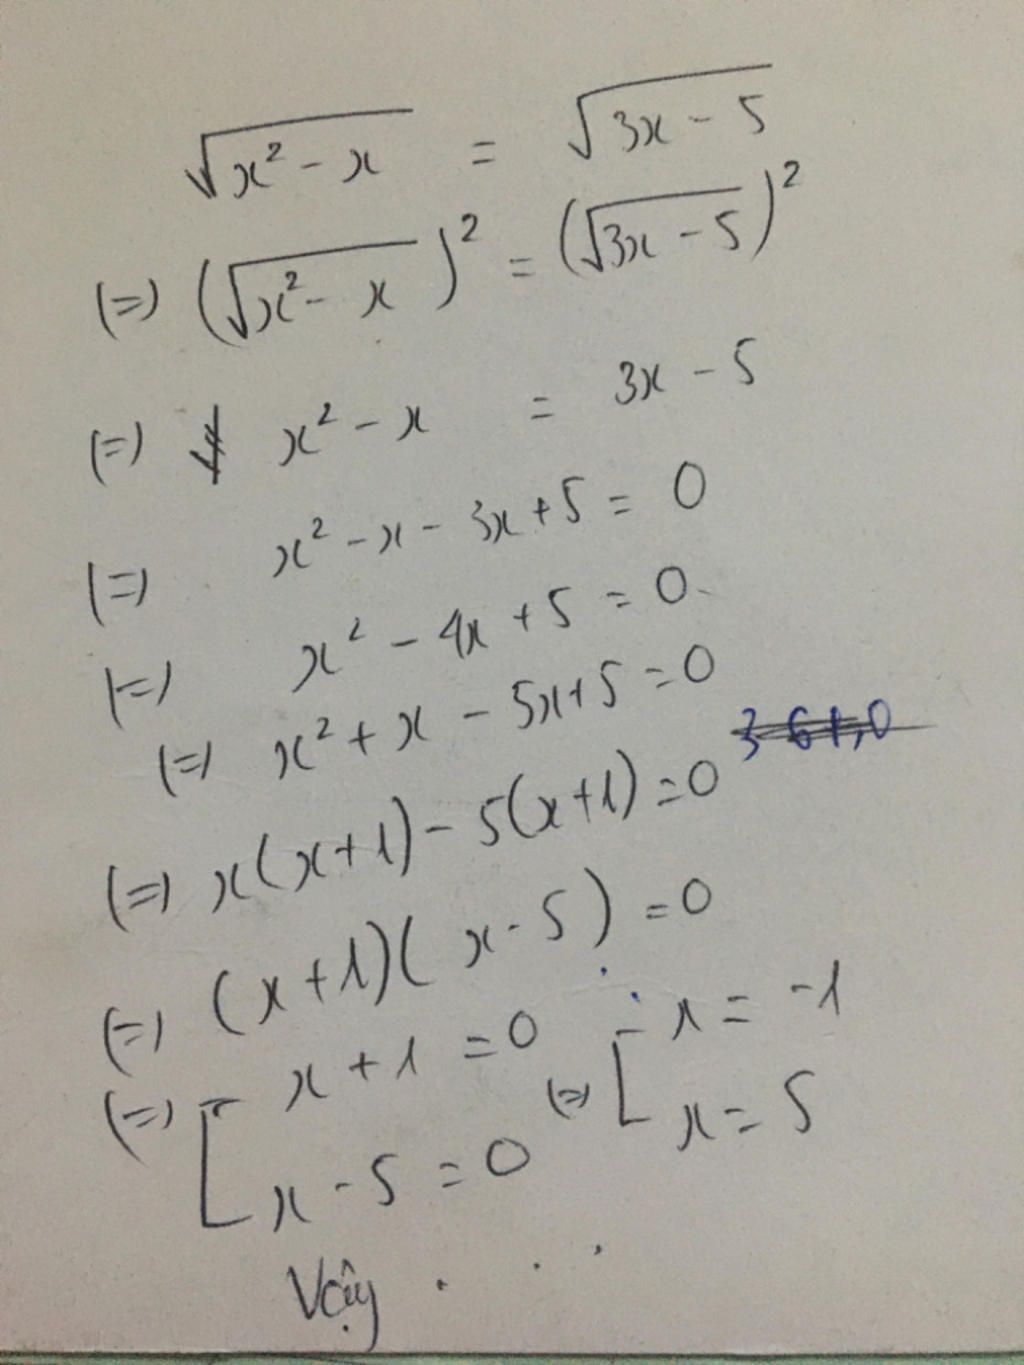 √(x² - x) = √(3x - 5)
(=) (√(x² - x))² = (√(3x - 5))²
(=) x² - x = 3x - 5
(=) x² - x - 3x + 5 = 0
(=) x² - 4x + 5 = 0
(=) x² + x - 5x + 5 = 0
(=) x(x + 1) - 5(x + 1) = 0
(=) (x + 1)(x - 5) = 0
(=) [ x + 1 = 0 (=) [ x = -1
x - 5 = 0 x = 5
Vậy . . .